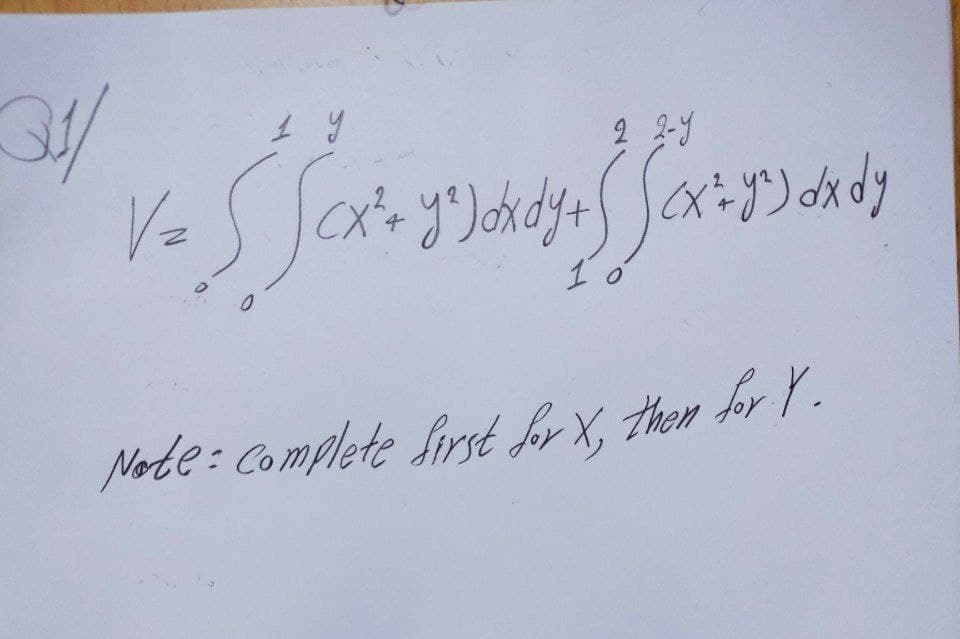 Q1/
V = ∫₀¹ ∫₀ʸ (x² + y²) dx dy + ∫₁² ∫₀²⁻ʸ (x² + y²) dx dy
Note: Complete first for X, then for Y.